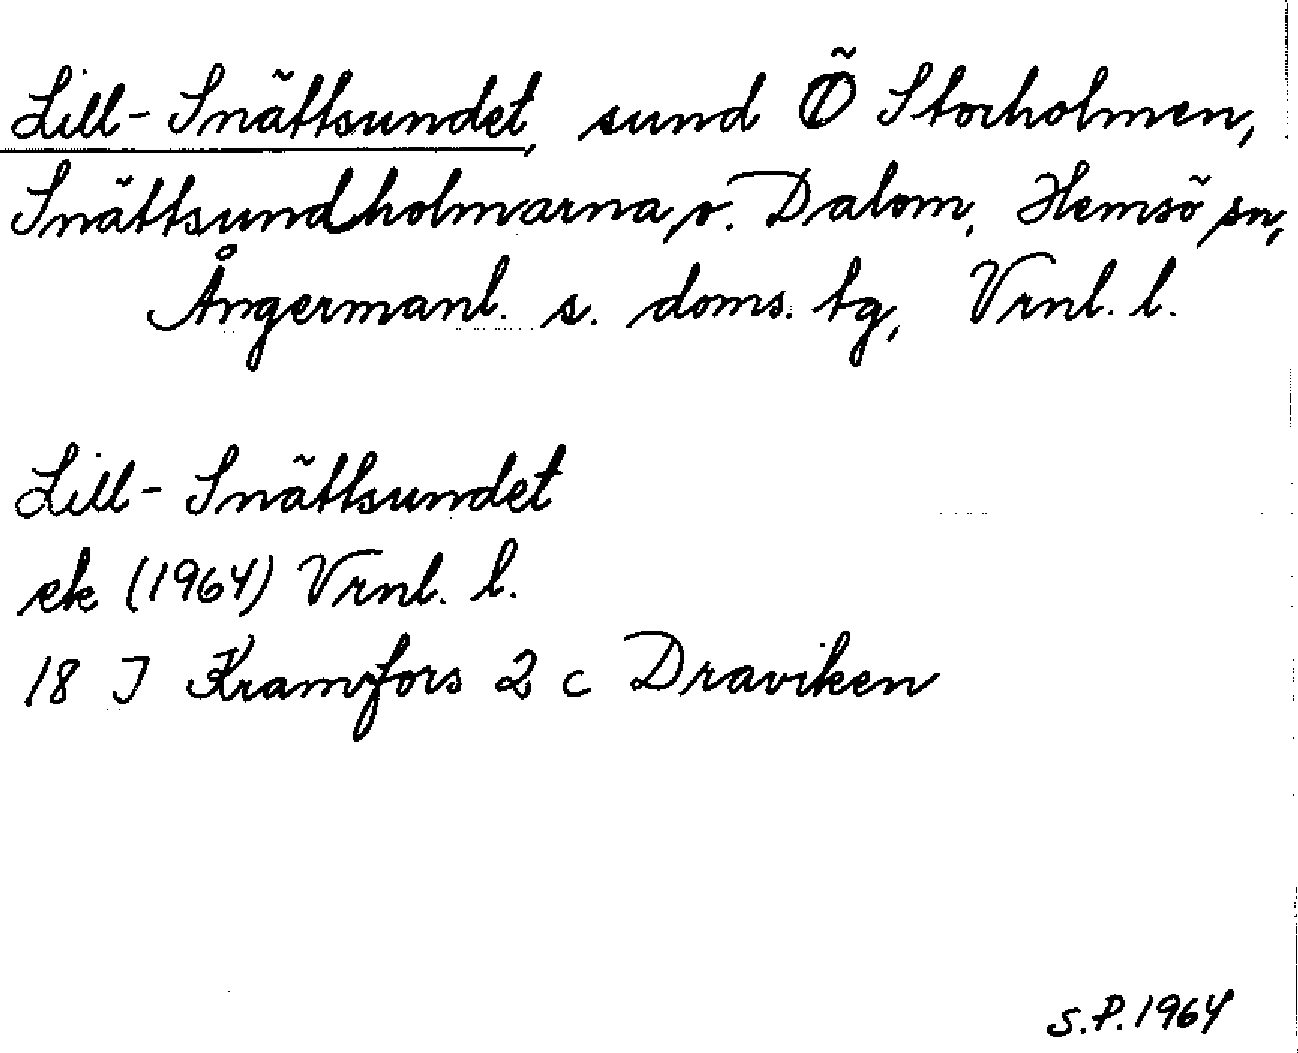 Lill-Snättsundet, sund Ö Storholmen,
Snättsundholmarna o. Dalom, Hemsö sn,
Ångermanl. s. doms. tg, Vrnl. l.
Lill-Snättsundet
ek (1964) Vrnl. l.
18 I Kramfors 2 c Draviken
S.P. 1964